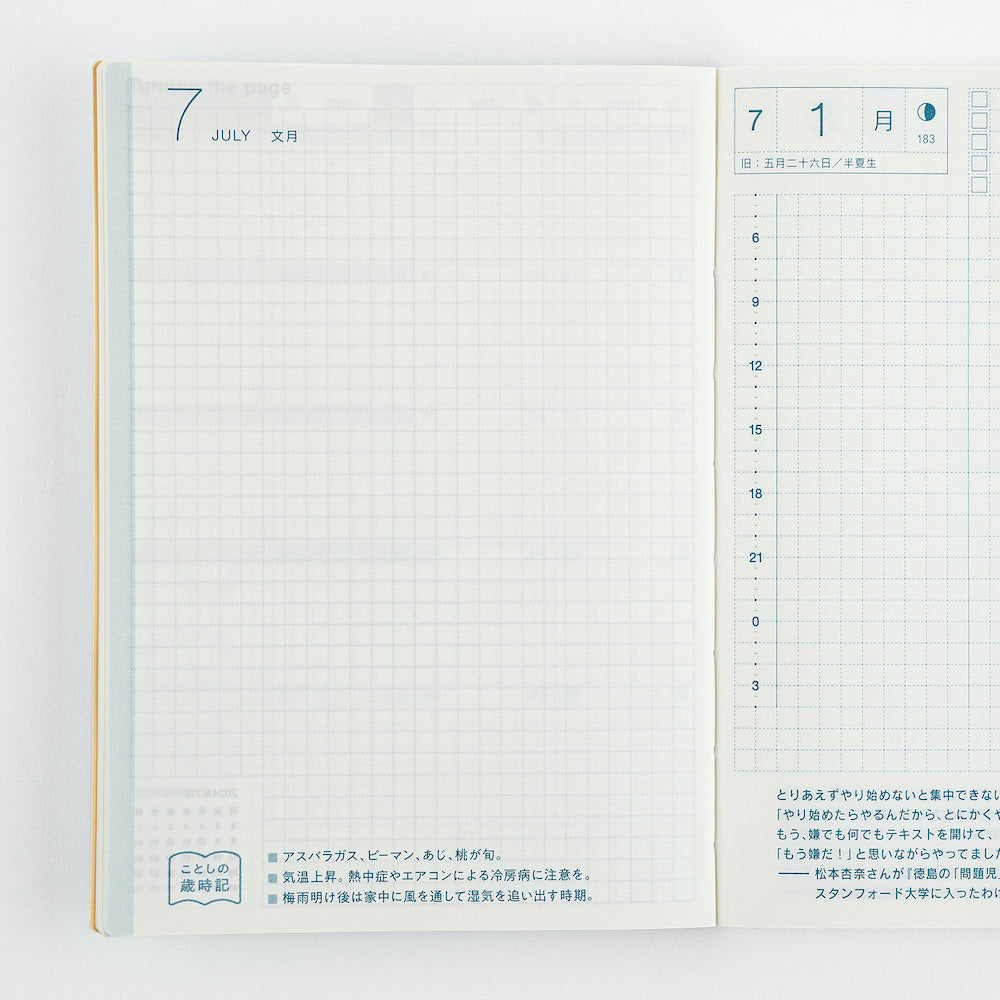 Turning the page
7 JULY 文月
ことしの
歳時記
■ アスパラガス、ピーマン、あじ、桃が旬。
■ 気温上昇。熱中症やエアコンによる冷房病に注意を。
■ 梅雨明け後は家中に風を通して湿気を追い出す時期。
7 1 月
183
旧：五月二十六日／半夏生
6
9
12
15
18
21
0
3
とりあえずやり始めないと集中できない
「やり始めたらやるんだから、とにかくや
もう、嫌でも何でもテキストを開けて、
「もう嫌だ！」と思いながらやってました
—— 松本杏奈さんが『徳島の「問題児」
スタンフォード大学に入ったわけ